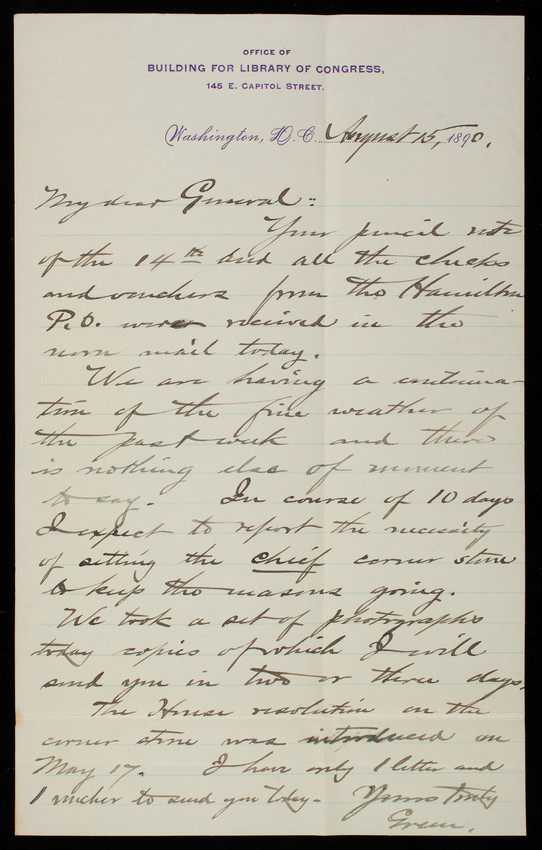 OFFICE OF
BUILDING FOR LIBRARY OF CONGRESS,
145 E. CAPITOL STREET.
Washington, D.C. August 15, 1890.
My dear General:
Your pencil note
of the 14th and all the checks
and vouchers from the Hamilton
P.O. were received in the
noon mail today.
We are having a continua-
tion of the fine weather of
the past week and there
is nothing else of moment
to say. In course of 10 days
I expect to report the necessity
of setting the chief corner stone
to keep the masons going.
We took a set of photographs
today copies of which I will
send you in two or three days.
The House resolution on the
corner stone was introduced on
May 17. I have only 1 letter and
1 voucher to send you today. Yours truly
Green.